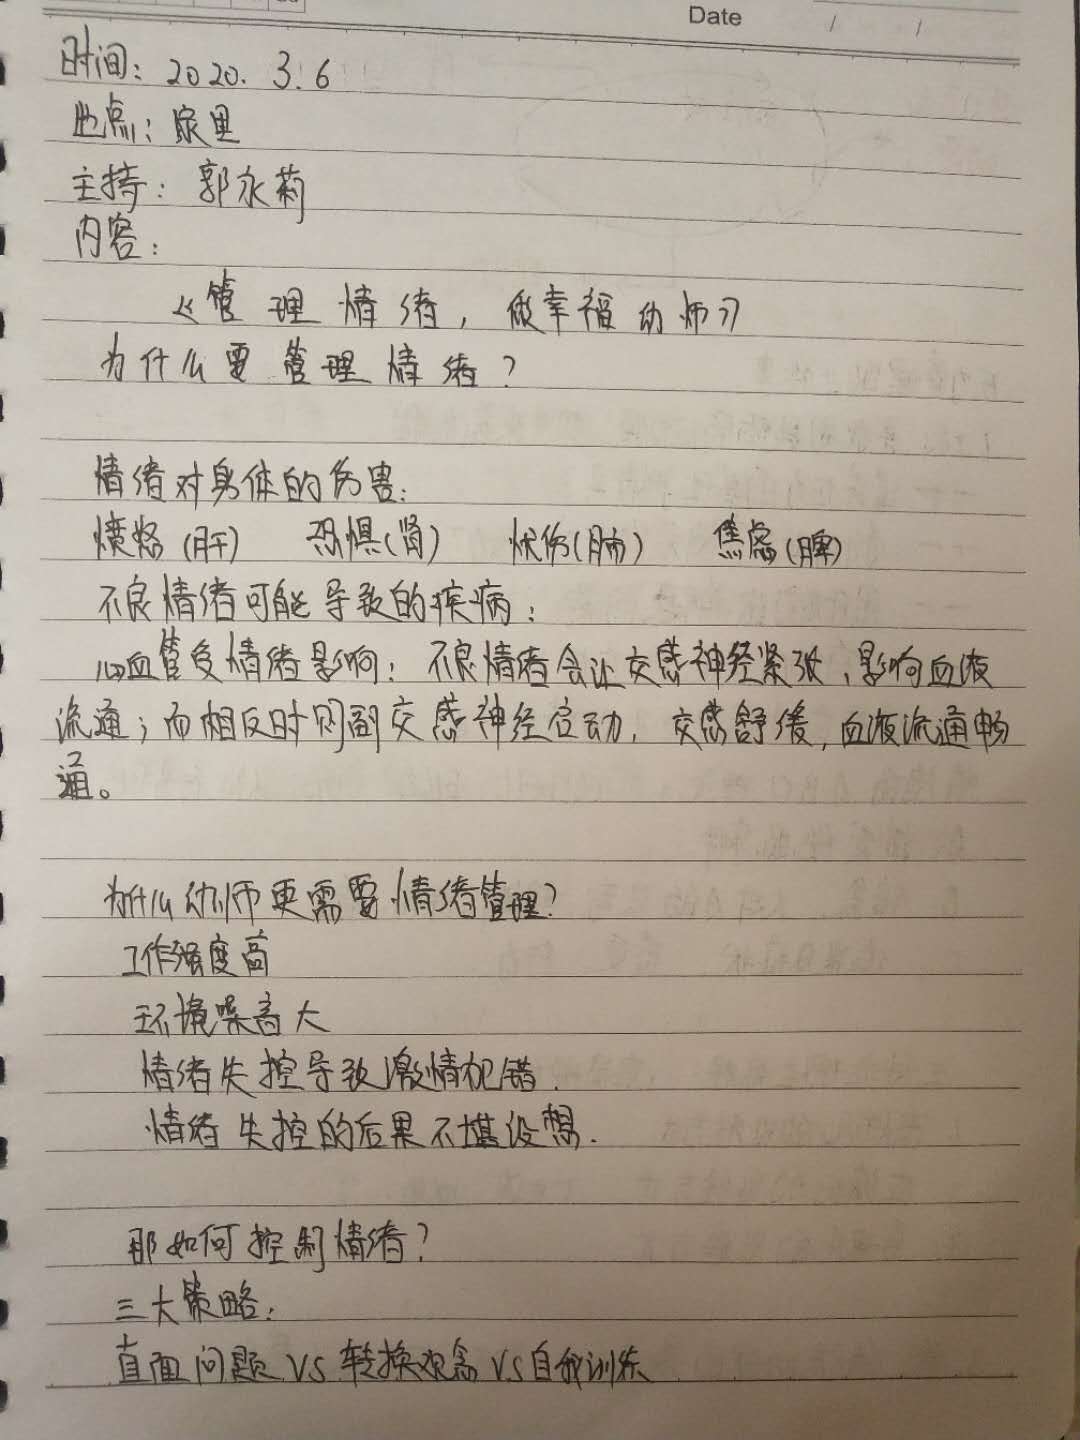 Date / /
时间：2020.3.6
地点：家里
主持：郭永莉
内容：
《管理情绪，做幸福幼师》
为什么要管理情绪？
情绪对身体的伤害：
愤怒(肝) 恐惧(肾) 忧伤(肺) 焦虑(脾)
不良情绪可能导致的疾病：
心血管受情绪影响：不良情绪会让交感神经紧张，影响血液
流通；而相反时则副交感神经启动，交感舒缓，血液流通畅
通。
为什么幼师更需要情绪管理？
工作强度高
环境噪音大
情绪失控导致激情犯错.
情绪失控的后果不堪设想.
那如何控制情绪？
三大策略：
直面问题 VS 转换观念 VS 自我训练